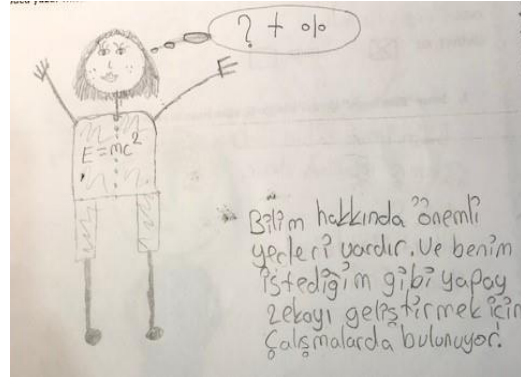 ? + %
E=mc²
Bilim hakkında önemli
yerleri vardır. Ve benim
istediğim gibi yapay
zekayı geliştirmek için
Çalışmalarda bulunuyor.